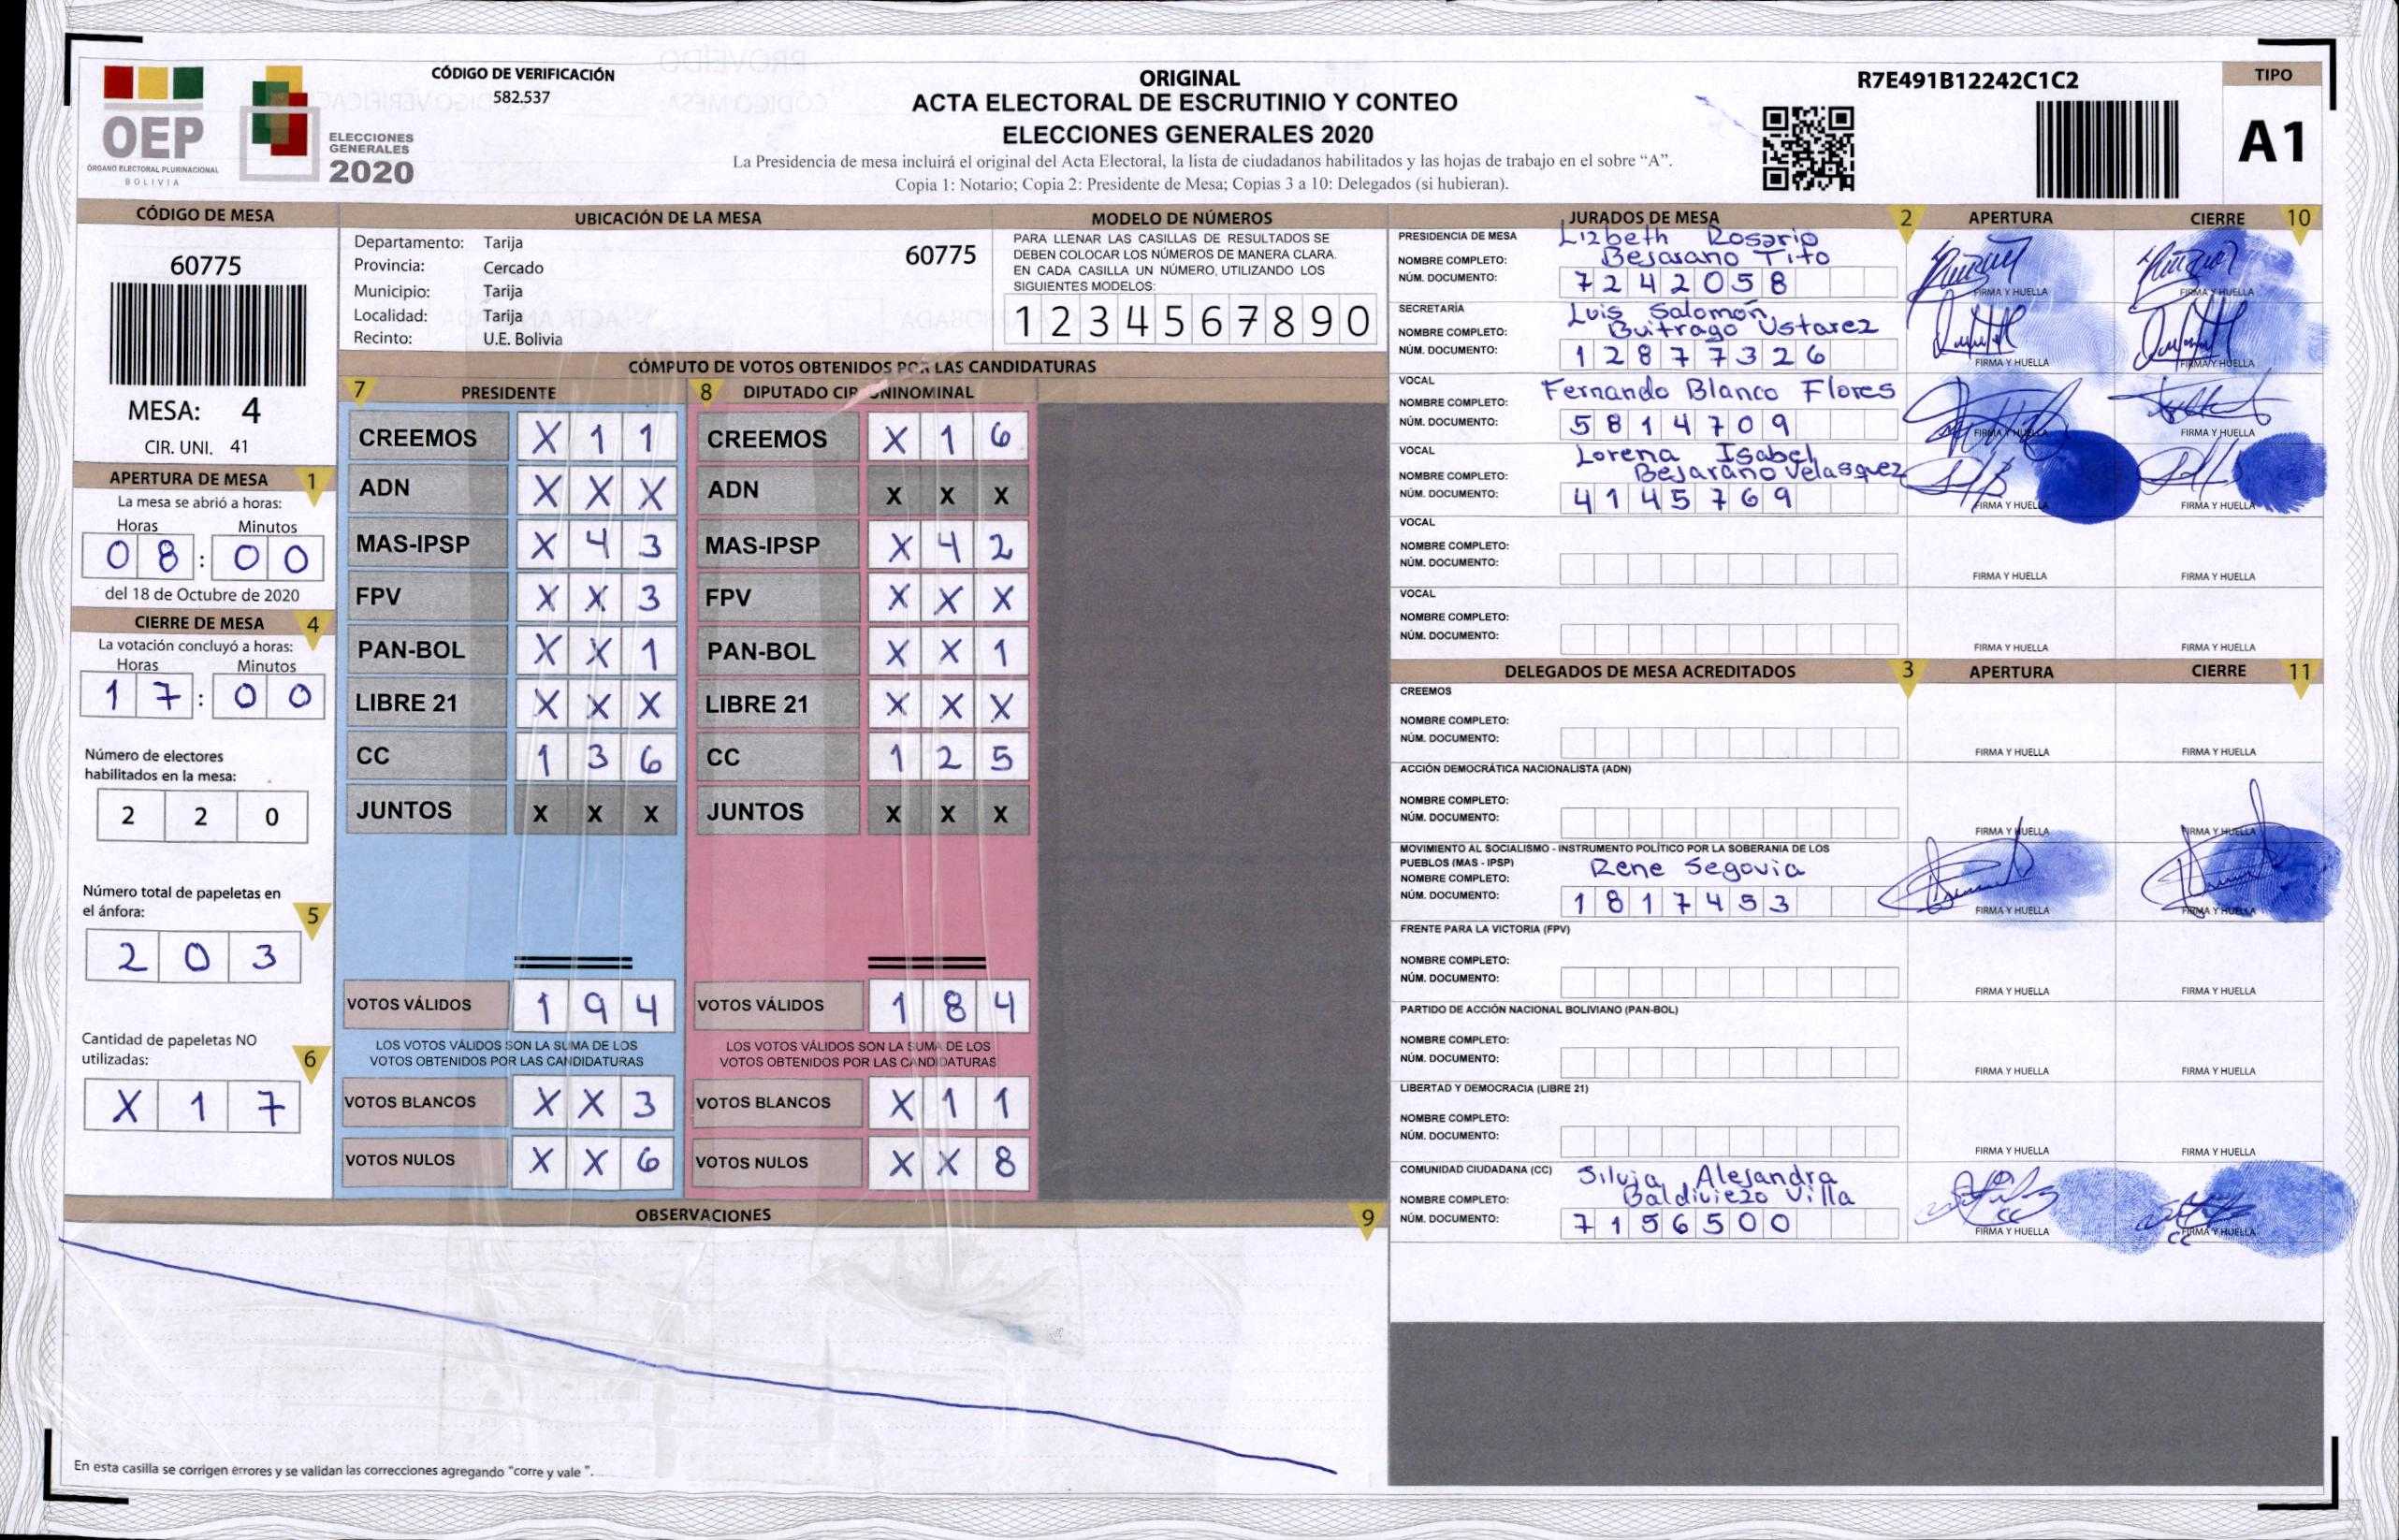 CÓDIGO DE VERIFICACIÓN
582.537
ORIGINAL
ACTA ELECTORAL DE ESCRUTINIO Y CONTEO
ELECCIONES GENERALES 2020
La Presidencia de mesa incluirá el original del Acta Electoral, la lista de ciudadanos habilitados y las hojas de trabajo en el sobre “A”.
Copia 1: Notario; Copia 2: Presidente de Mesa; Copias 3 a 10: Delegados (si hubieran).
R7E491B12242C1C2
TIPO
A1
OEP
ÓRGANO ELECTORAL PLURINACIONAL
BOLIVIA
ELECCIONES
GENERALES
2020
CÓDIGO DE MESA
60775
MESA: 4
CIR. UNI. 41
APERTURA DE MESA 1
La mesa se abrió a horas:
Horas Minutos
0 8 : 0 0
del 18 de Octubre de 2020
CIERRE DE MESA 4
La votación concluyó a horas:
Horas Minutos
1 7 : 0 0
Número de electores
habilitados en la mesa:
2 2 0
Número total de papeletas en
el ánfora: 5
2 0 3
Cantidad de papeletas NO
utilizadas: 6
X 1 7
UBICACIÓN DE LA MESA
Departamento: Tarija
60775
Provincia: Cercado
Municipio: Tarija
Localidad: Tarija
Recinto: U.E. Bolivia
MODELO DE NÚMEROS
PARA LLENAR LAS CASILLAS DE RESULTADOS SE
DEBEN COLOCAR LOS NÚMEROS DE MANERA CLARA.
EN CADA CASILLA UN NÚMERO, UTILIZANDO LOS
SIGUIENTES MODELOS:
1 2 3 4 5 6 7 8 9 0
CÓMPUTO DE VOTOS OBTENIDOS POR LAS CANDIDATURAS
7 PRESIDENTE
CREEMOS X 1 1
ADN X X X
MAS-IPSP X 4 3
FPV X X 3
PAN-BOL X X 1
LIBRE 21 X X X
CC 1 3 6
JUNTOS X X X
VOTOS VÁLIDOS 1 9 4
LOS VOTOS VÁLIDOS SON LA SUMA DE LOS
VOTOS OBTENIDOS POR LAS CANDIDATURAS
VOTOS BLANCOS X X 3
VOTOS NULOS X X 6
8 DIPUTADO CIR UNINOMINAL
CREEMOS X 1 6
ADN X X X
MAS-IPSP X 4 2
FPV X X X
PAN-BOL X X 1
LIBRE 21 X X X
CC 1 2 5
JUNTOS X X X
VOTOS VÁLIDOS 1 8 4
LOS VOTOS VÁLIDOS SON LA SUMA DE LOS
VOTOS OBTENIDOS POR LAS CANDIDATURAS
VOTOS BLANCOS X 1 1
VOTOS NULOS X X 8
OBSERVACIONES 9
En esta casilla se corrigen errores y se validan las correcciones agregando "corre y vale ".
JURADOS DE MESA 2 APERTURA CIERRE 10
PRESIDENCIA DE MESA
Lizbeth Rosario
NOMBRE COMPLETO: Bejarano Tito
NÚM. DOCUMENTO: 7 2 4 2 0 5 8
FIRMA Y HUELLA FIRMA Y HUELLA
SECRETARÍA
Luis Salomón
NOMBRE COMPLETO: Buitrago Ustarez
NÚM. DOCUMENTO: 1 2 8 7 7 3 2 6
FIRMA Y HUELLA FIRMA Y HUELLA
VOCAL
NOMBRE COMPLETO: Fernando Blanco Flores
NÚM. DOCUMENTO: 5 8 1 4 7 0 9
FIRMA Y HUELLA FIRMA Y HUELLA
VOCAL
Lorena Isabel
NOMBRE COMPLETO: Bejarano Velasquez
NÚM. DOCUMENTO: 4 1 4 5 7 6 9
FIRMA Y HUELLA FIRMA Y HUELLA
VOCAL
NOMBRE COMPLETO:
NÚM. DOCUMENTO:
FIRMA Y HUELLA FIRMA Y HUELLA
VOCAL
NOMBRE COMPLETO:
NÚM. DOCUMENTO:
FIRMA Y HUELLA FIRMA Y HUELLA
DELEGADOS DE MESA ACREDITADOS 3 APERTURA CIERRE 11
CREEMOS
NOMBRE COMPLETO:
NÚM. DOCUMENTO:
FIRMA Y HUELLA FIRMA Y HUELLA
ACCIÓN DEMOCRÁTICA NACIONALISTA (ADN)
NOMBRE COMPLETO:
NÚM. DOCUMENTO:
FIRMA Y HUELLA FIRMA Y HUELLA
MOVIMIENTO AL SOCIALISMO - INSTRUMENTO POLÍTICO POR LA SOBERANIA DE LOS
PUEBLOS (MAS - IPSP)
NOMBRE COMPLETO: Rene Segovia
NÚM. DOCUMENTO: 1 8 1 7 4 5 3
FIRMA Y HUELLA FIRMA Y HUELLA
FRENTE PARA LA VICTORIA (FPV)
NOMBRE COMPLETO:
NÚM. DOCUMENTO:
FIRMA Y HUELLA FIRMA Y HUELLA
PARTIDO DE ACCIÓN NACIONAL BOLIVIANO (PAN-BOL)
NOMBRE COMPLETO:
NÚM. DOCUMENTO:
FIRMA Y HUELLA FIRMA Y HUELLA
LIBERTAD Y DEMOCRACIA (LIBRE 21)
NOMBRE COMPLETO:
NÚM. DOCUMENTO:
FIRMA Y HUELLA FIRMA Y HUELLA
COMUNIDAD CIUDADANA (CC)
Silvia Alejandra
NOMBRE COMPLETO: Baldiviezo Villa
NÚM. DOCUMENTO: 7 1 5 6 5 0 0
FIRMA Y HUELLA FIRMA Y HUELLA